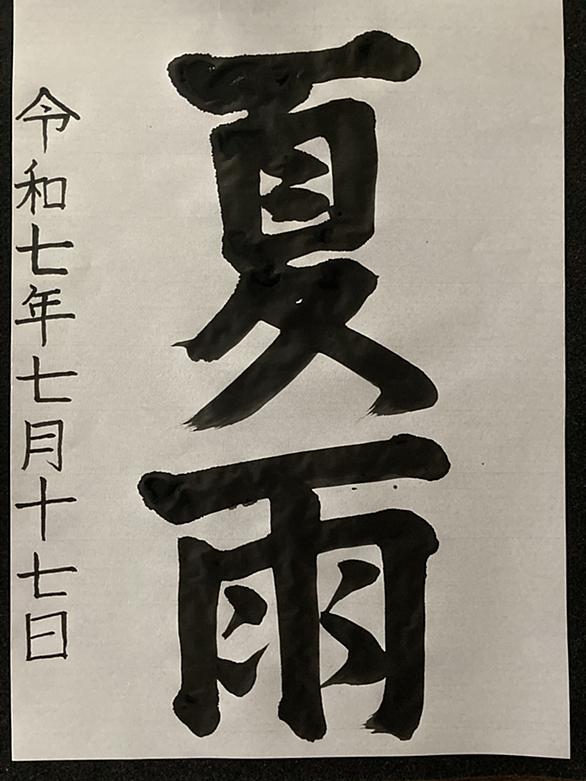 夏雨
令和七年七月十七日